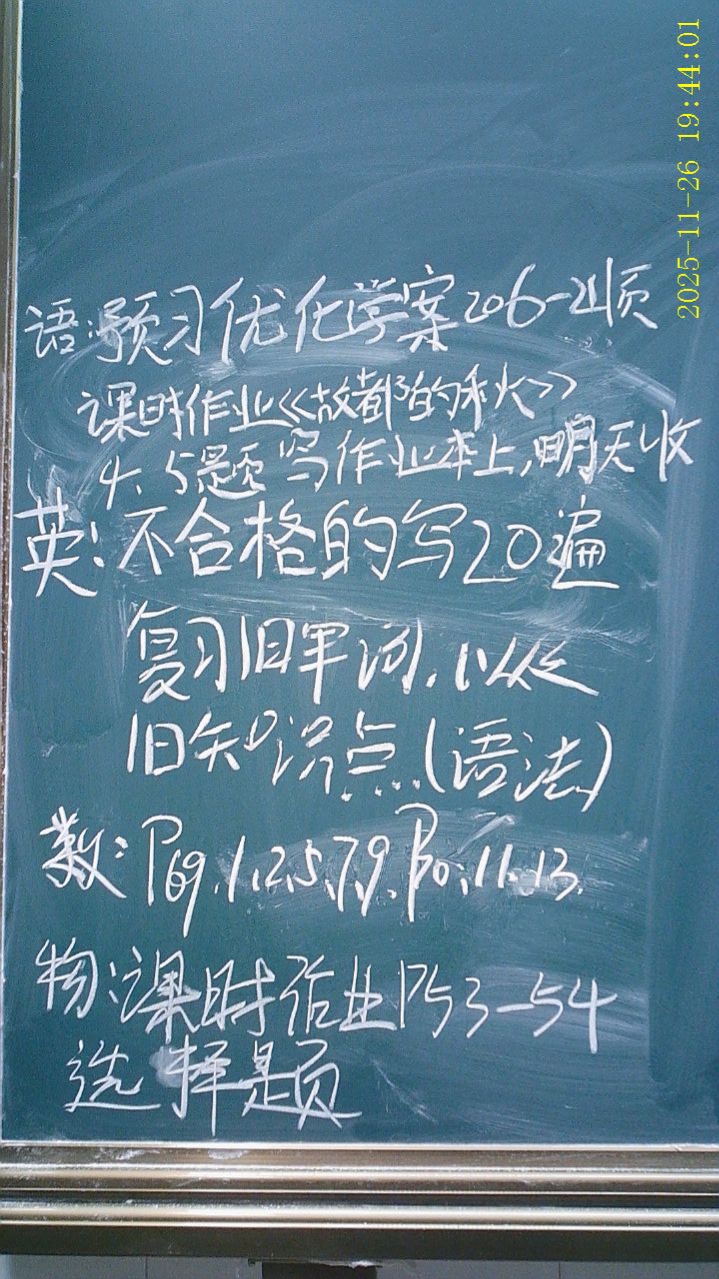 2025-11-26 19:44:01
语:预习优化学案206-211页
课时作业<<故都的秋>>
4、5题写作业本上,明天收
英:不合格的写20遍
复习旧单词,以及
旧知识点(语法)
数:P69.1.2.5.7.9.P70.11.13.
物:课时作业P53-54
选择题